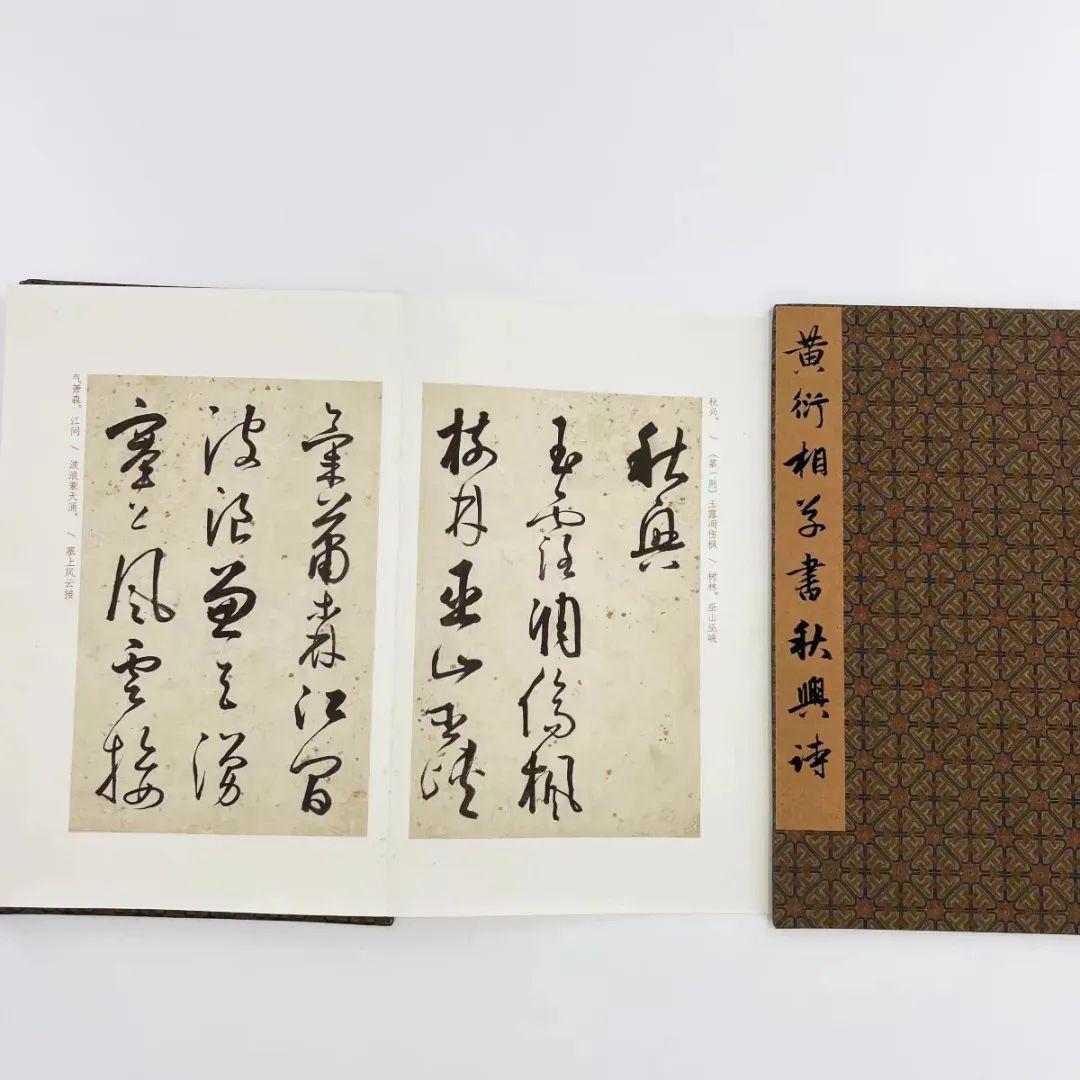 黄衍相草書秋興詩
秋兴。 / （第一则）玉露凋伤枫 / 树林。巫山巫峡
秋興
玉露凋傷楓
樹林巫山巫峽
氣蕭森江間
波浪兼天湧
塞上風雲接
气萧森。江间 / 波浪兼天涌。 / 塞上风云接